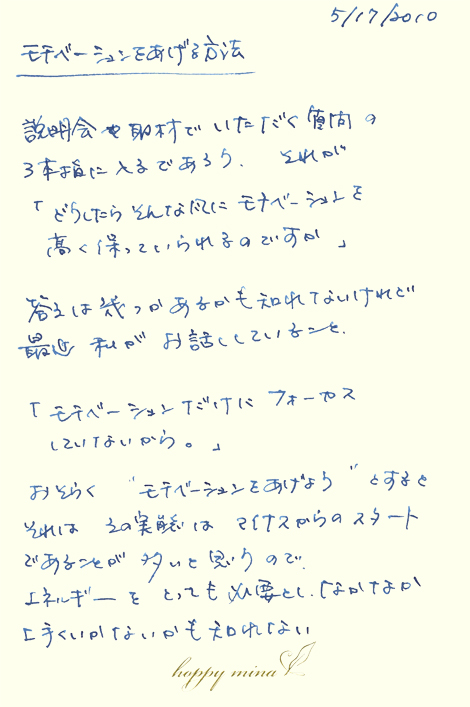 5/17/2010
モチベーションをあげる方法
説明会や取材でいただく質問の
3本指に入るであろう、それが
「どうしたらそんな風にモチベーションを
高く保っていられるのですか」
答えは幾つかあるかも知れないけれど
最近 私が お話ししていること、
「モチベーションだけにフォーカス
していないから。」
おそらく "モチベーションをあげよう" とすると
それは その実態は マイナスからのスタート
であることが 多いと思うので、
エネルギーを とっても必要とし、なかなか
上手くいかないかも知れない
happy mina